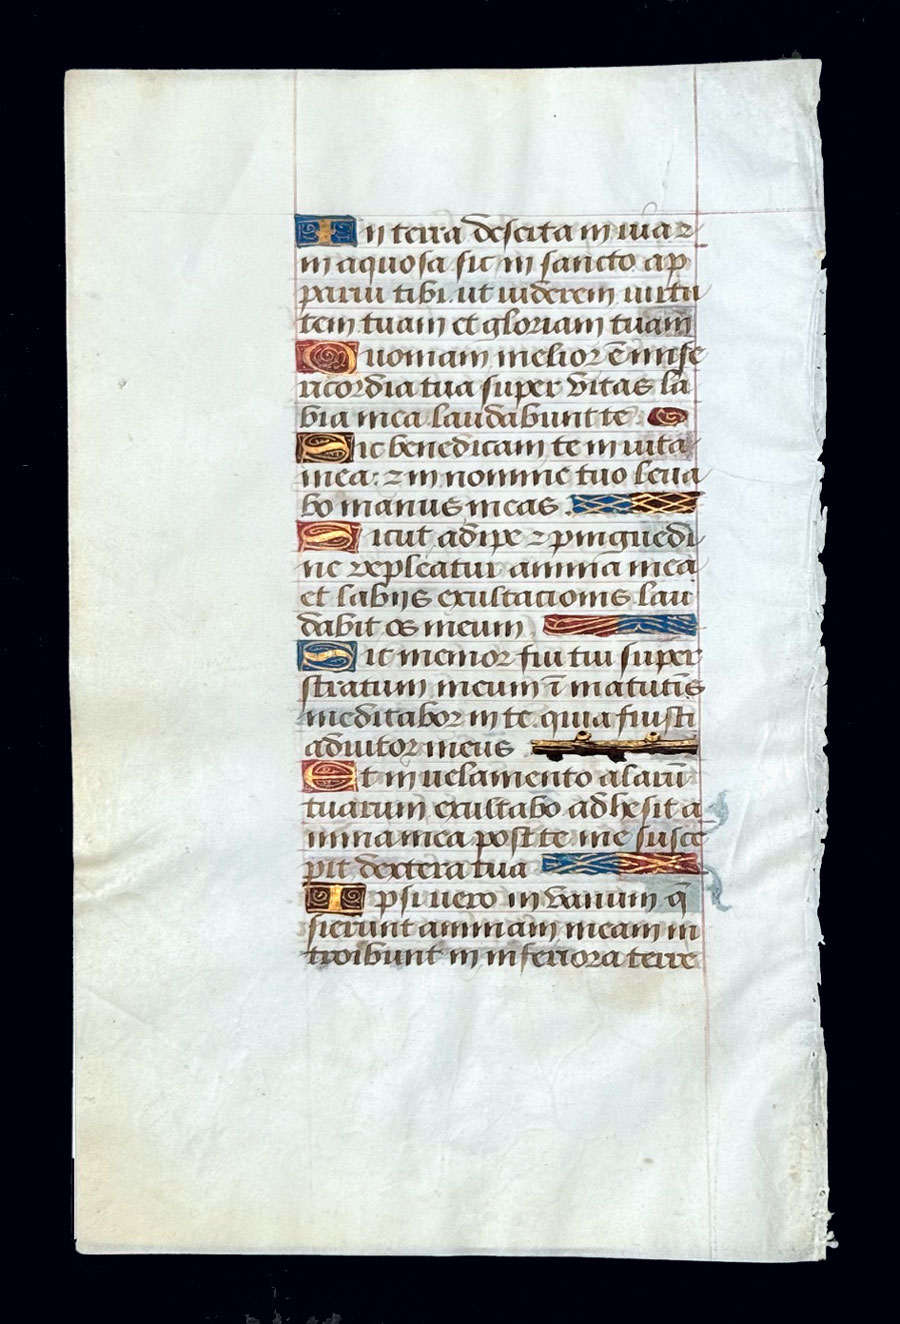 In terra deserta in uia ⁊
in aquosa sic in sancto ap
parui tibi. ut uiderem uirtu
tem tuam et gloriam tuam
Quoniam melior ē mise
ricordia tua super vitas la
bia mea laudabunt te
Sic benedicam te in uita
mea: ⁊ in nomine tuo leua
bo manus meas.
Sicut adipe ⁊ pinguedi
ne repleatur anima mea
et labijs exultationis lau
dabit os meum
Sic memor fui tui super
stratum meum ī matutīs
meditabor in te. quia fuisti
adiutor meus
Et in uelamento alarū
tuarum exultabo adhesit a
nima mea post te me susce
pit dextera tua
Ipsi uero in vanum q̄
sierunt animam meam in
troibunt in inferiora terre